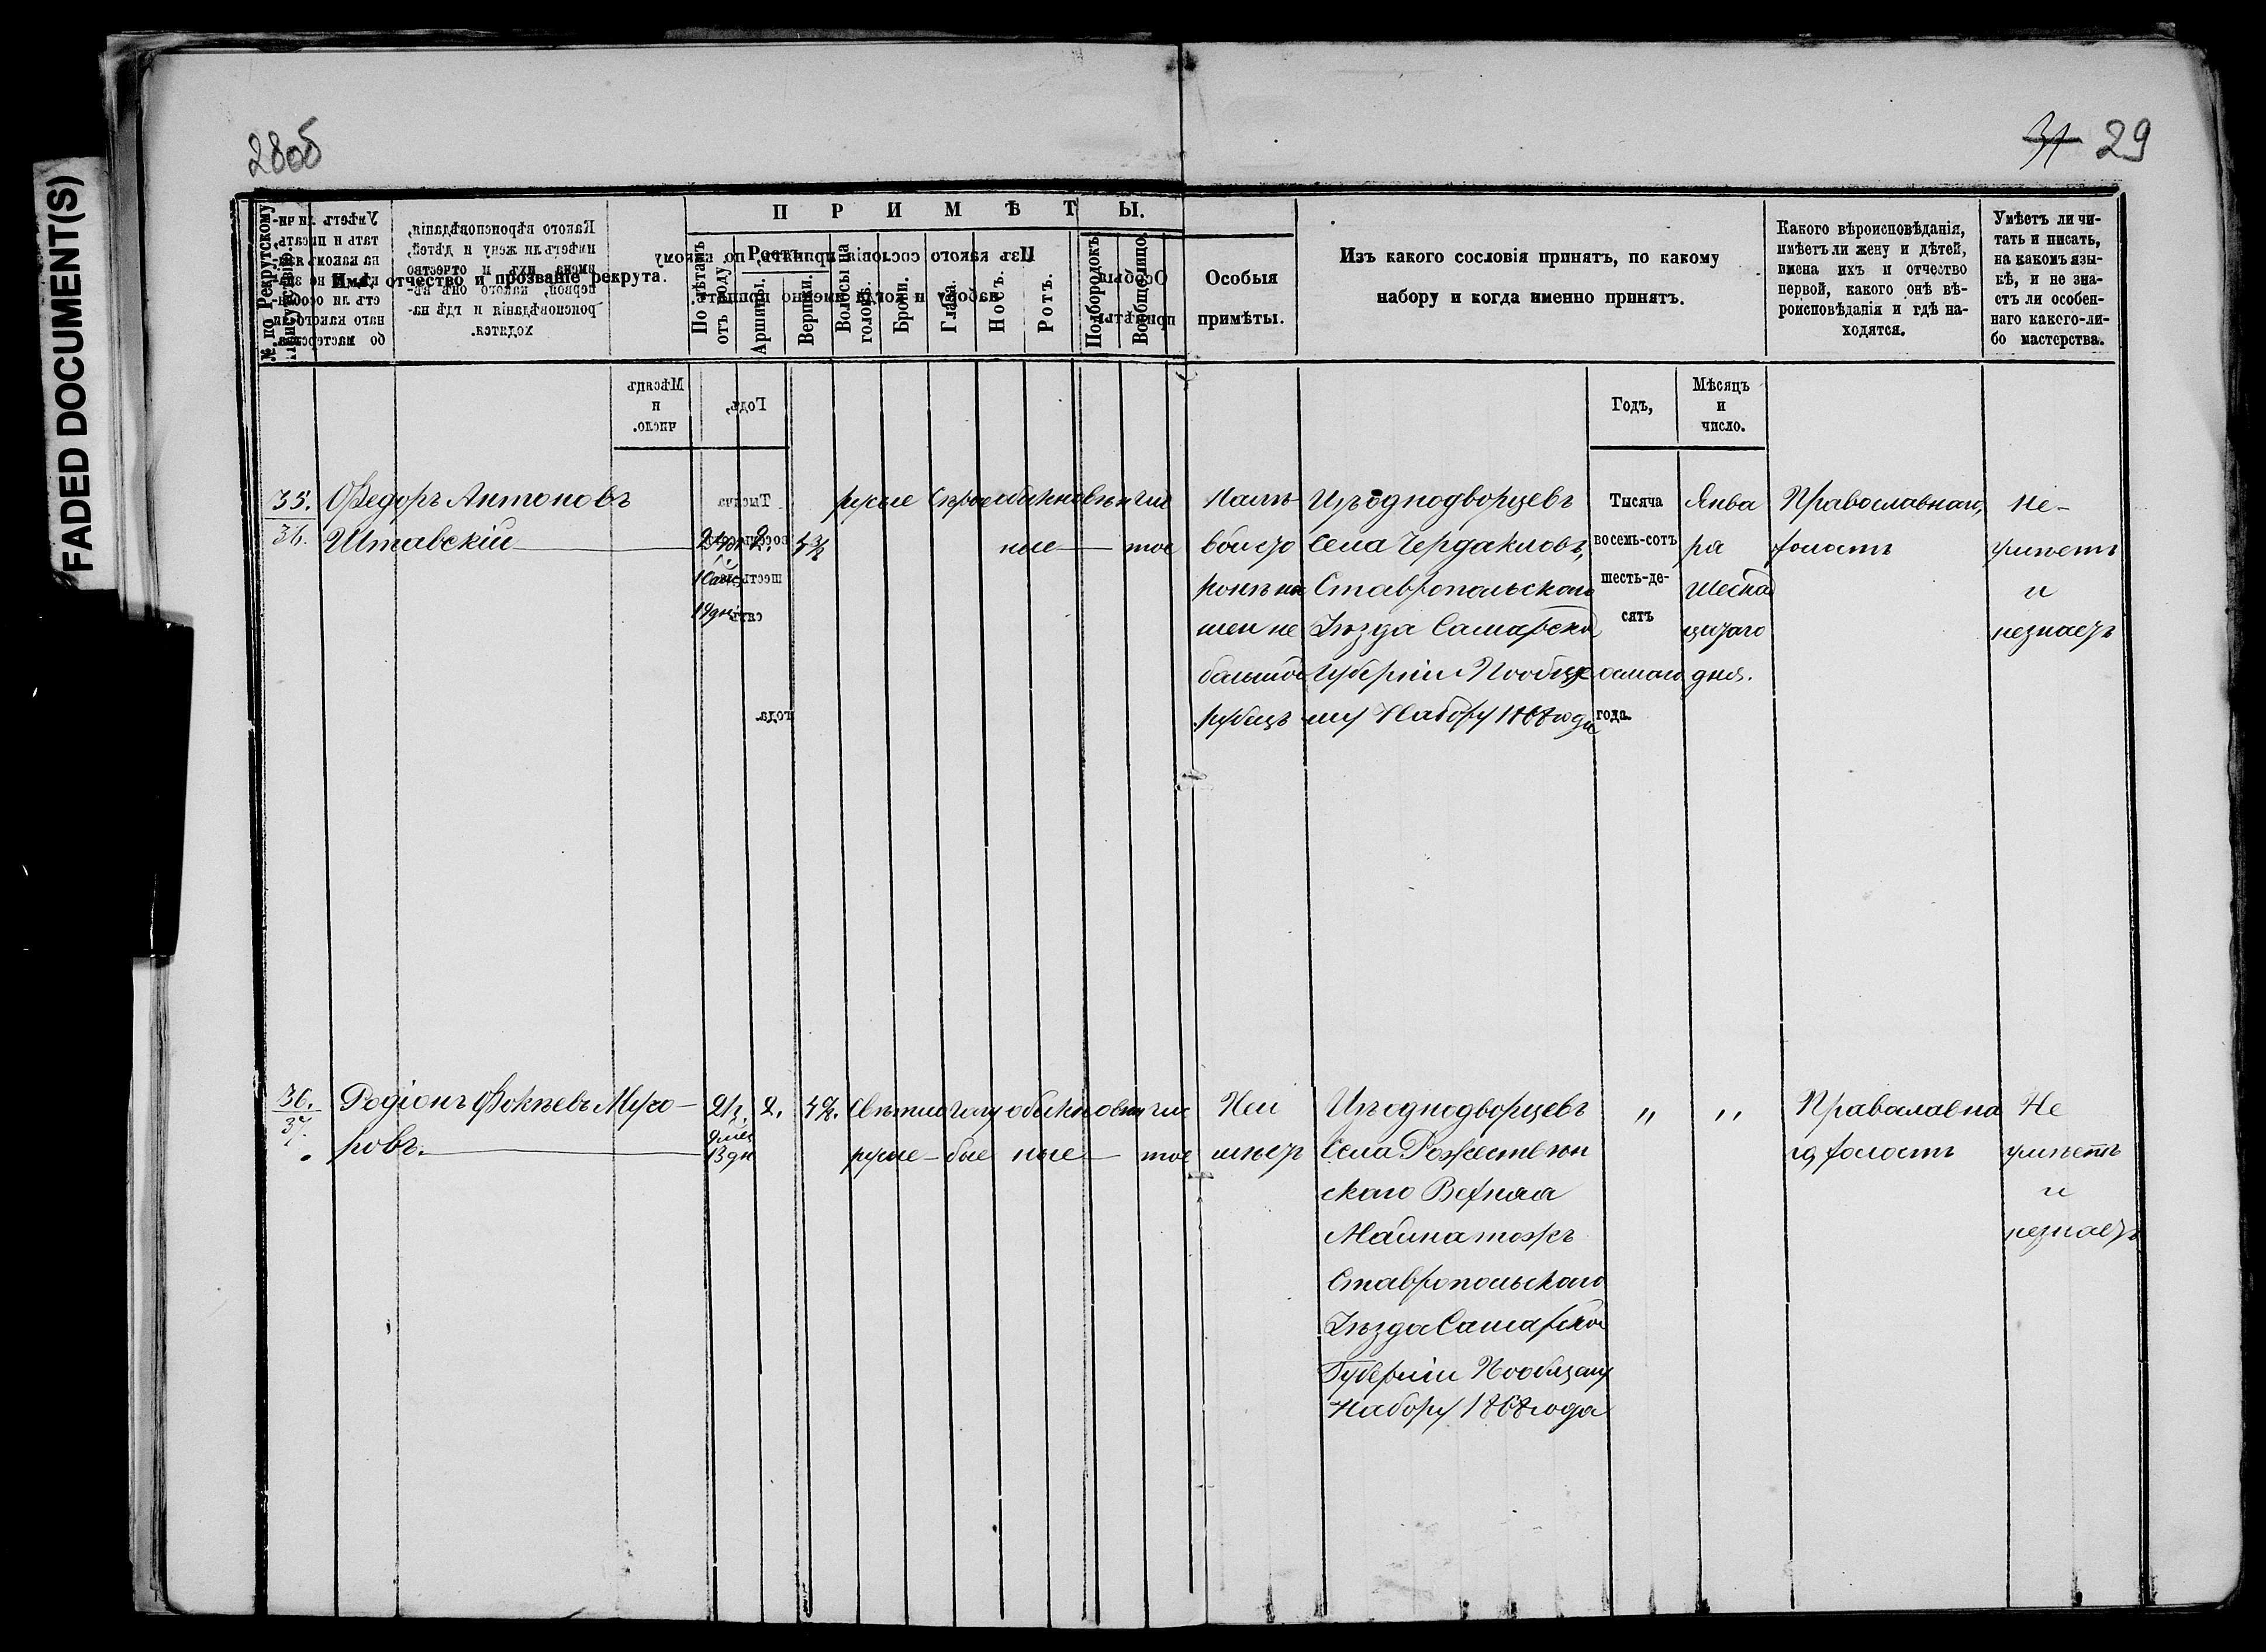 FADED DOCUMENT(S)
28об
31 29
№. по Рекрутскому Присутствію.
Имя, отчество и прозваніе рекрута.
ПРИМѢТЫ.
По лѣтамъ отъ роду.
Ростъ.
Аршины.
Вершки.
Волосы на головѣ.
Брови.
Глаза.
Носъ.
Ротъ.
Подбородокъ.
Вообще лицо.
Особыя
примѣты.
Изъ какого сословія принятъ, по какому
набору и когда именно принятъ.
Какого вѣроисповѣданія,
имѣетъ ли жену и дѣтей,
имена ихъ и отчество
первой, какого онѣ вѣ-
роисповѣданія и гдѣ на-
ходятся.
Умѣетъ ли чи-
тать и писать,
на какомъ язы-
кѣ, и не зна-
етъ ли особен-
наго какого-ли-
бо мастерства.
Годъ,
Мѣсяцъ
и
число.
35. Ѳедоръ Антоновъ русые Сѣрые обыкновен чис
36. Штавскій 2. ные тое
14 дн.
Изъ однодворцевъ
Села Чердаклов,
Ставропольскаго
Уѣзда Самарской
Губерніи Пообще
му Набору 1868 года
Тысяча
восемь-сотъ
шесть-де-
сятъ
осмаго
года.
Янва
ря
Шеснад
цатаго
дня.
Православнаго,
холостъ
Не-
умѣетъ
и
незнаетъ
рубецъ
36. Родіонъ Фокѣевъ Муко- 21 г. 2. Свѣтло голу обыкновен чис
37. ровъ. 9 мес русые бые ные тое
13 дн
Неи
мѣет
Изъ однодворцевъ
Села Рожествен
скаго Верхняя
Маина тожъ
Ставропольскаго
Уѣзда Самарской
Губерніи Пообщему
Набору 1868 года
" "
Православна
го, холостъ
Не
умѣетъ
и
незнаетъ